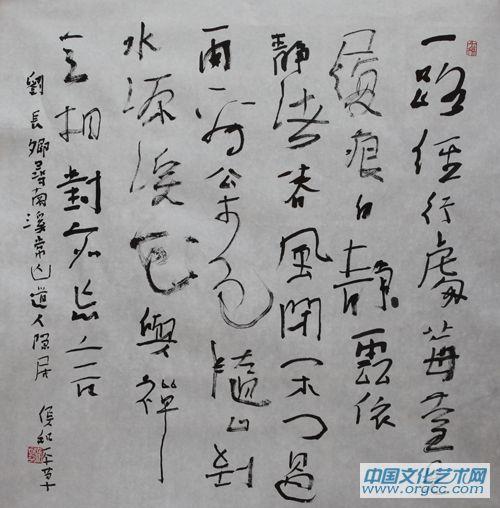 一路經行處莓苔見
履痕白靜雲依
靜渚春風閉閑門過
雨看松色隨山到
水源溪花與禪
意相對亦忘言
劉長卿尋南溪常山道人隱居
中国文化艺术网
www.orgcc.com